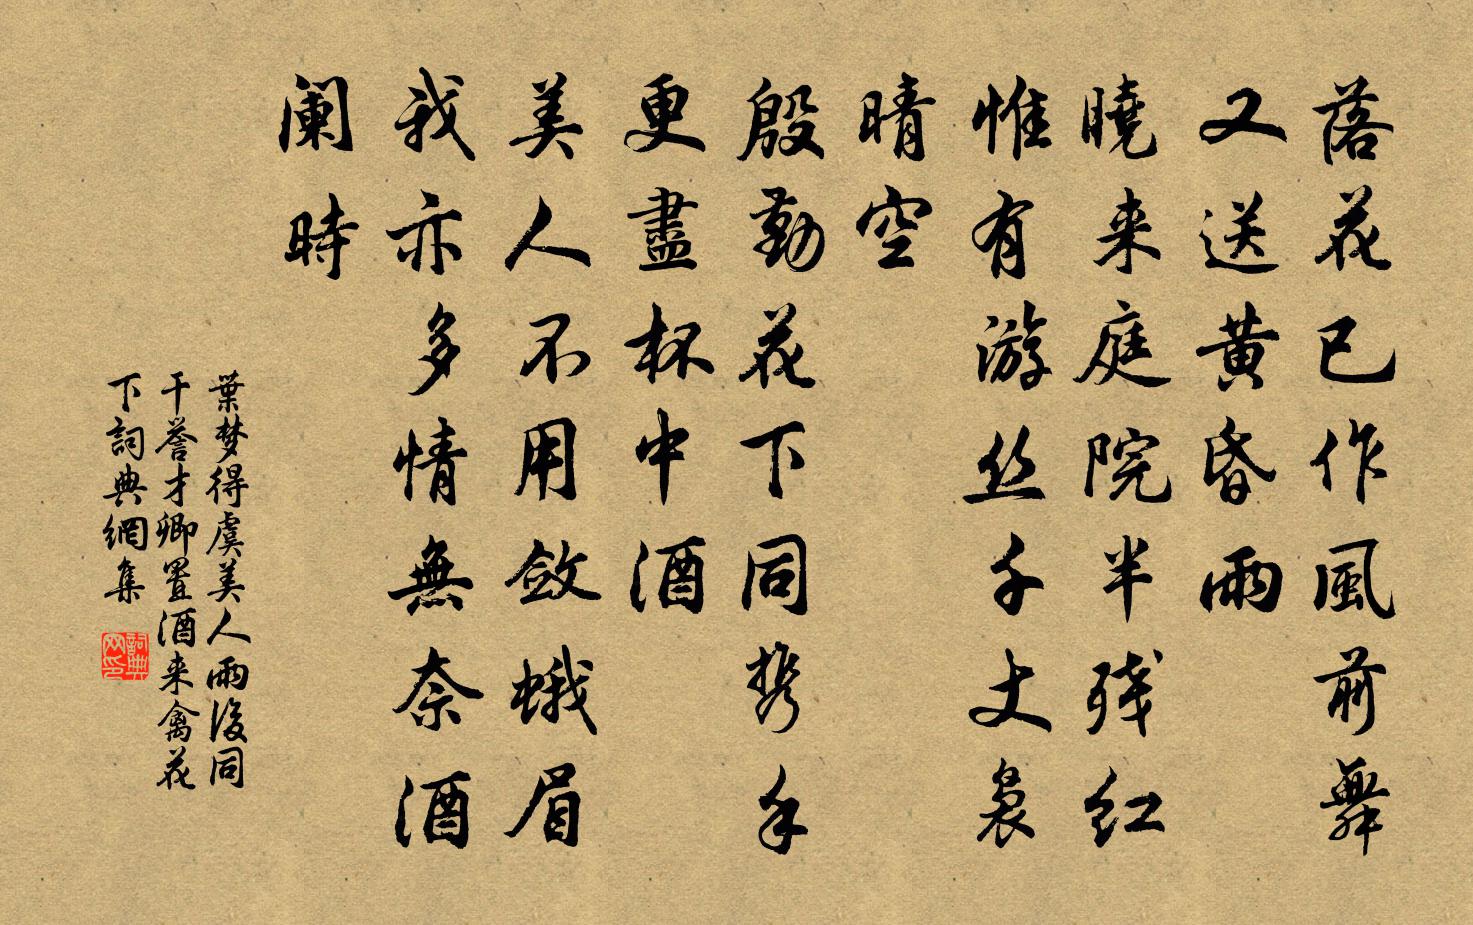 落花已作風前舞
又送黄昏雨
曉来庭院半残红
惟有游丝千丈裊
晴空
殷勤花下同携手
更盡杯中酒
美人不用斂蛾眉
我亦多情無奈酒
阑時
葉梦得虞美人雨後同
干誉才卿置酒来禽花
下詞典網集
詞典网印